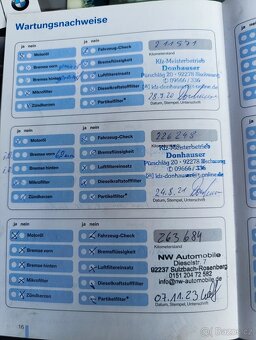 Wartungsnachweise
ja nein
ja nein
Motoröl
Fahrzeug-Check
211571
Bremse vorn
Bremsflüssigkeit
Kilometerstand
Bremse hinten
Luftfiltereinsatz
Kfz-Meisterbetrieb
Donhauser
Pürschläg 20 - 92278
☎ 09666 / 336
Mikrofilter
Dieselkraftstofffilter
28.9.20
Zündkerzen
Partikelfilter*
Datum, Stempel, Unterschrift
ja nein
ja nein
Motoröl
Fahrzeug-Check
226248
Bremse vorn
Bremsflüssigkeit
Kfz-Meisterbetrieb
Donhauser
Bremse hinten
Luftfiltereinsatz
Pürschläg 20 - 92278
☎ 09666 / 336
Mikrofilter
Dieselkraftstofffilter
Zündkerzen
Partikelfilter*
Datum, Stempel, Unterschrift
ja nein
ja nein
Motoröl
Fahrzeug-Check
263684
Bremse vorn
Bremsflüssigkeit
Kilometerstand
Bremse hinten
Luftfiltereinsatz
NW Automobile
92237 Sulzbach-Rosenberg
0151 204 72 582
info@nw-automobile.de
Mikrofilter
Dieselkraftstofffilter
Zündkerzen
Partikelfilter*
07.11.23
Datum, Stempel, Unterschrift
16